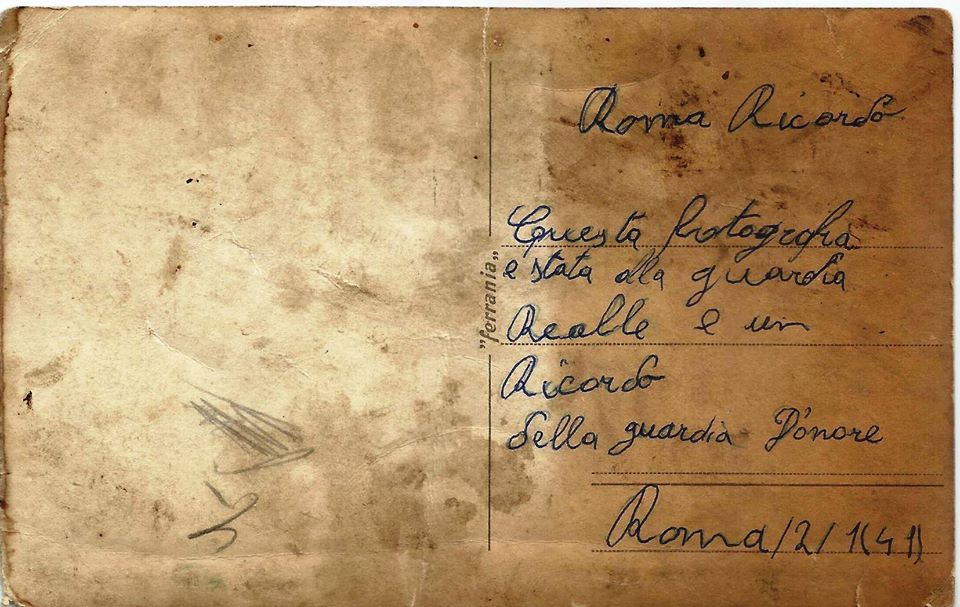 Roma Ricordo
Questa fotografia
e stata alla guardia
Mealle e un
Ricordo
della guardia D'onore
Roma/2/1(41)
"ferrania"